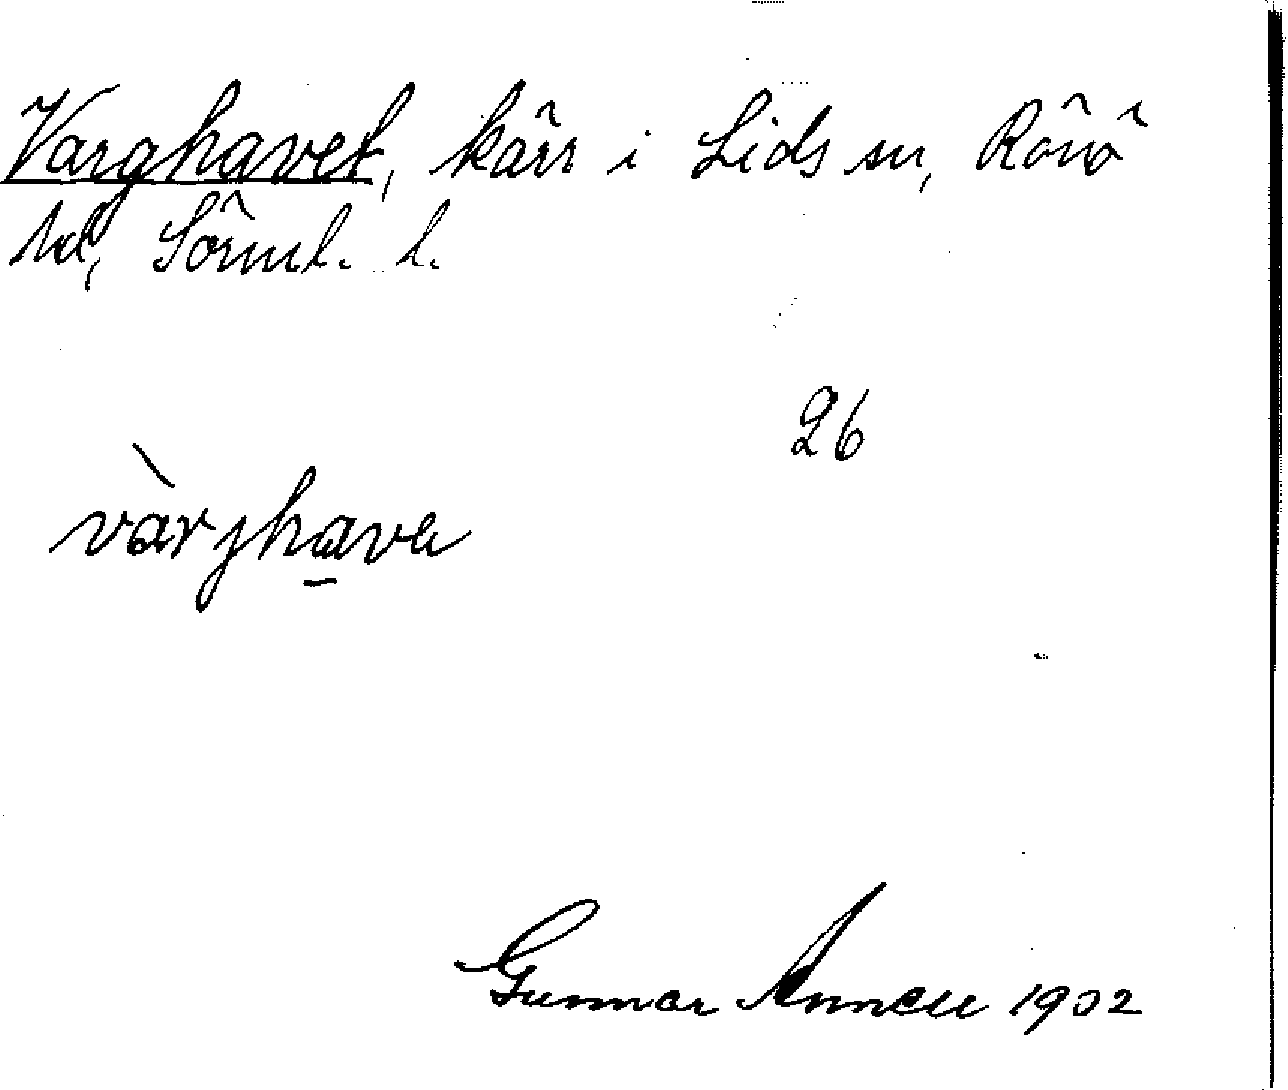 Varghavet, kärr i Lids sn, Rönö
hd, Sörml. l.
26
vàrjhava
Gunnar Annell 1902